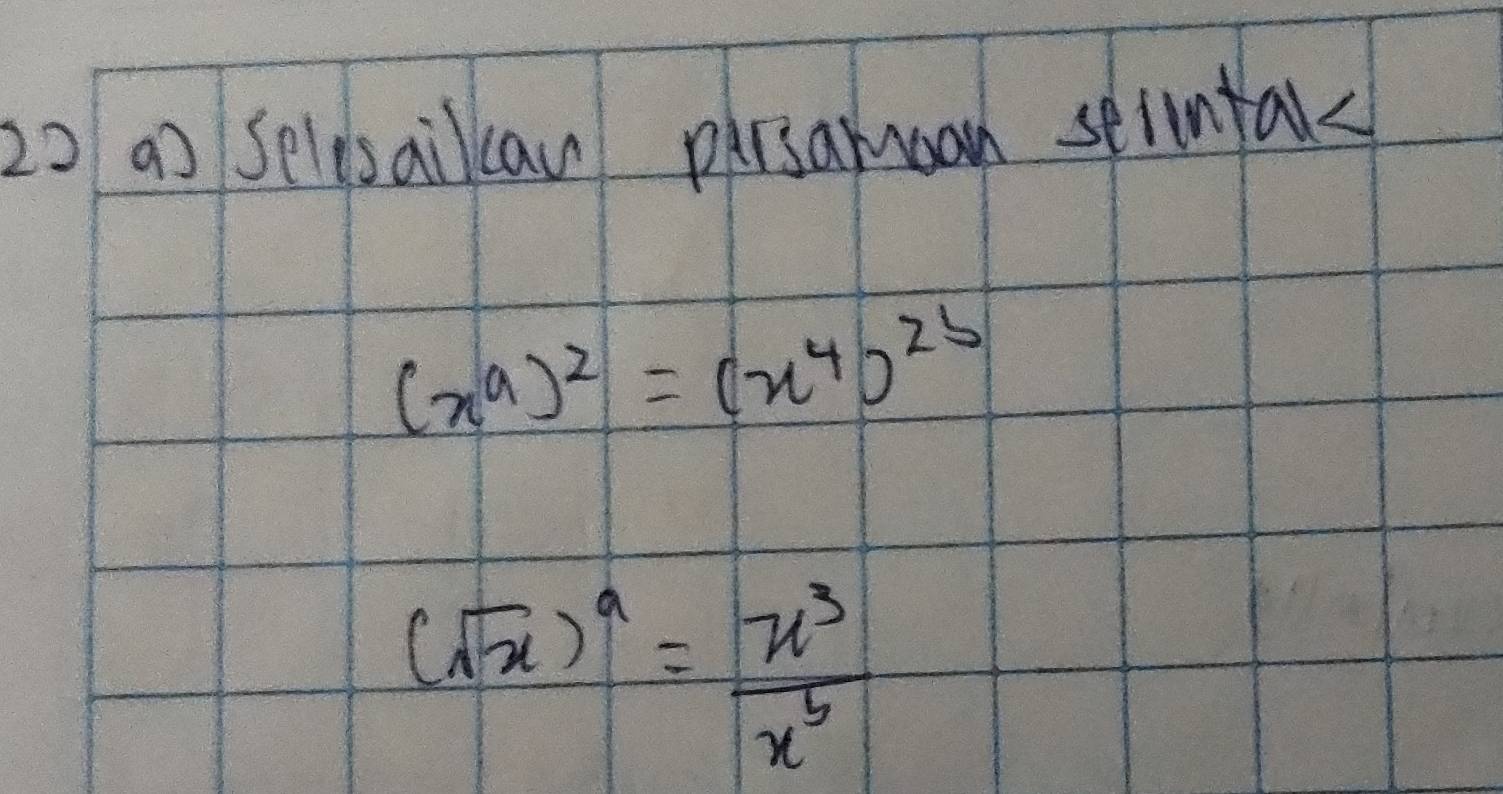 22 a) Selesaikan persamaan serentak
(x^a)^2 = (x^4)^{2b}
(√x)^a = x^3 / x^b